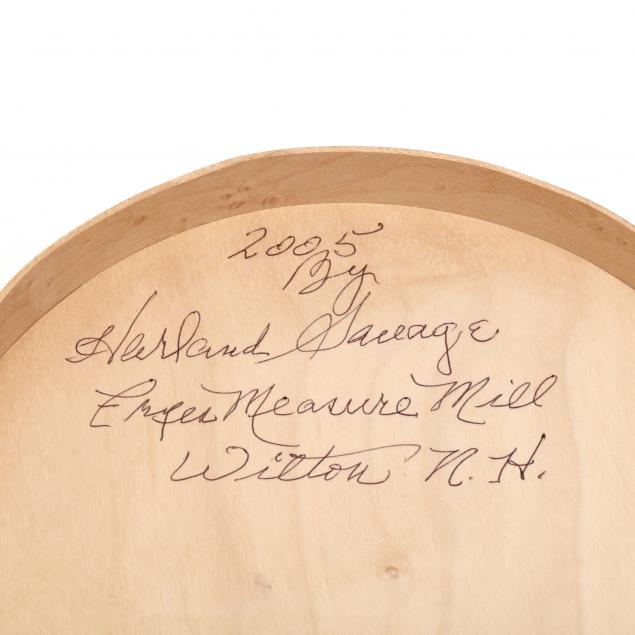 2005
By
Harland Savage
Fryes Measure Mill
Wilton N.H.